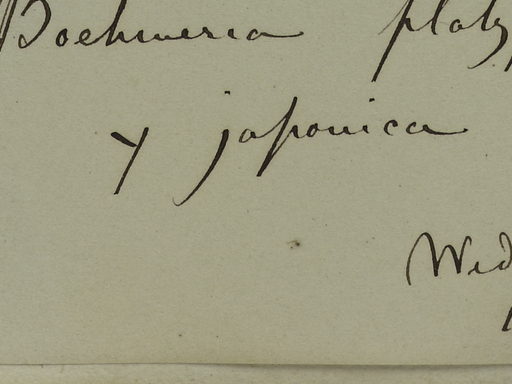 Boehmeria platy
γ japonica
Wed